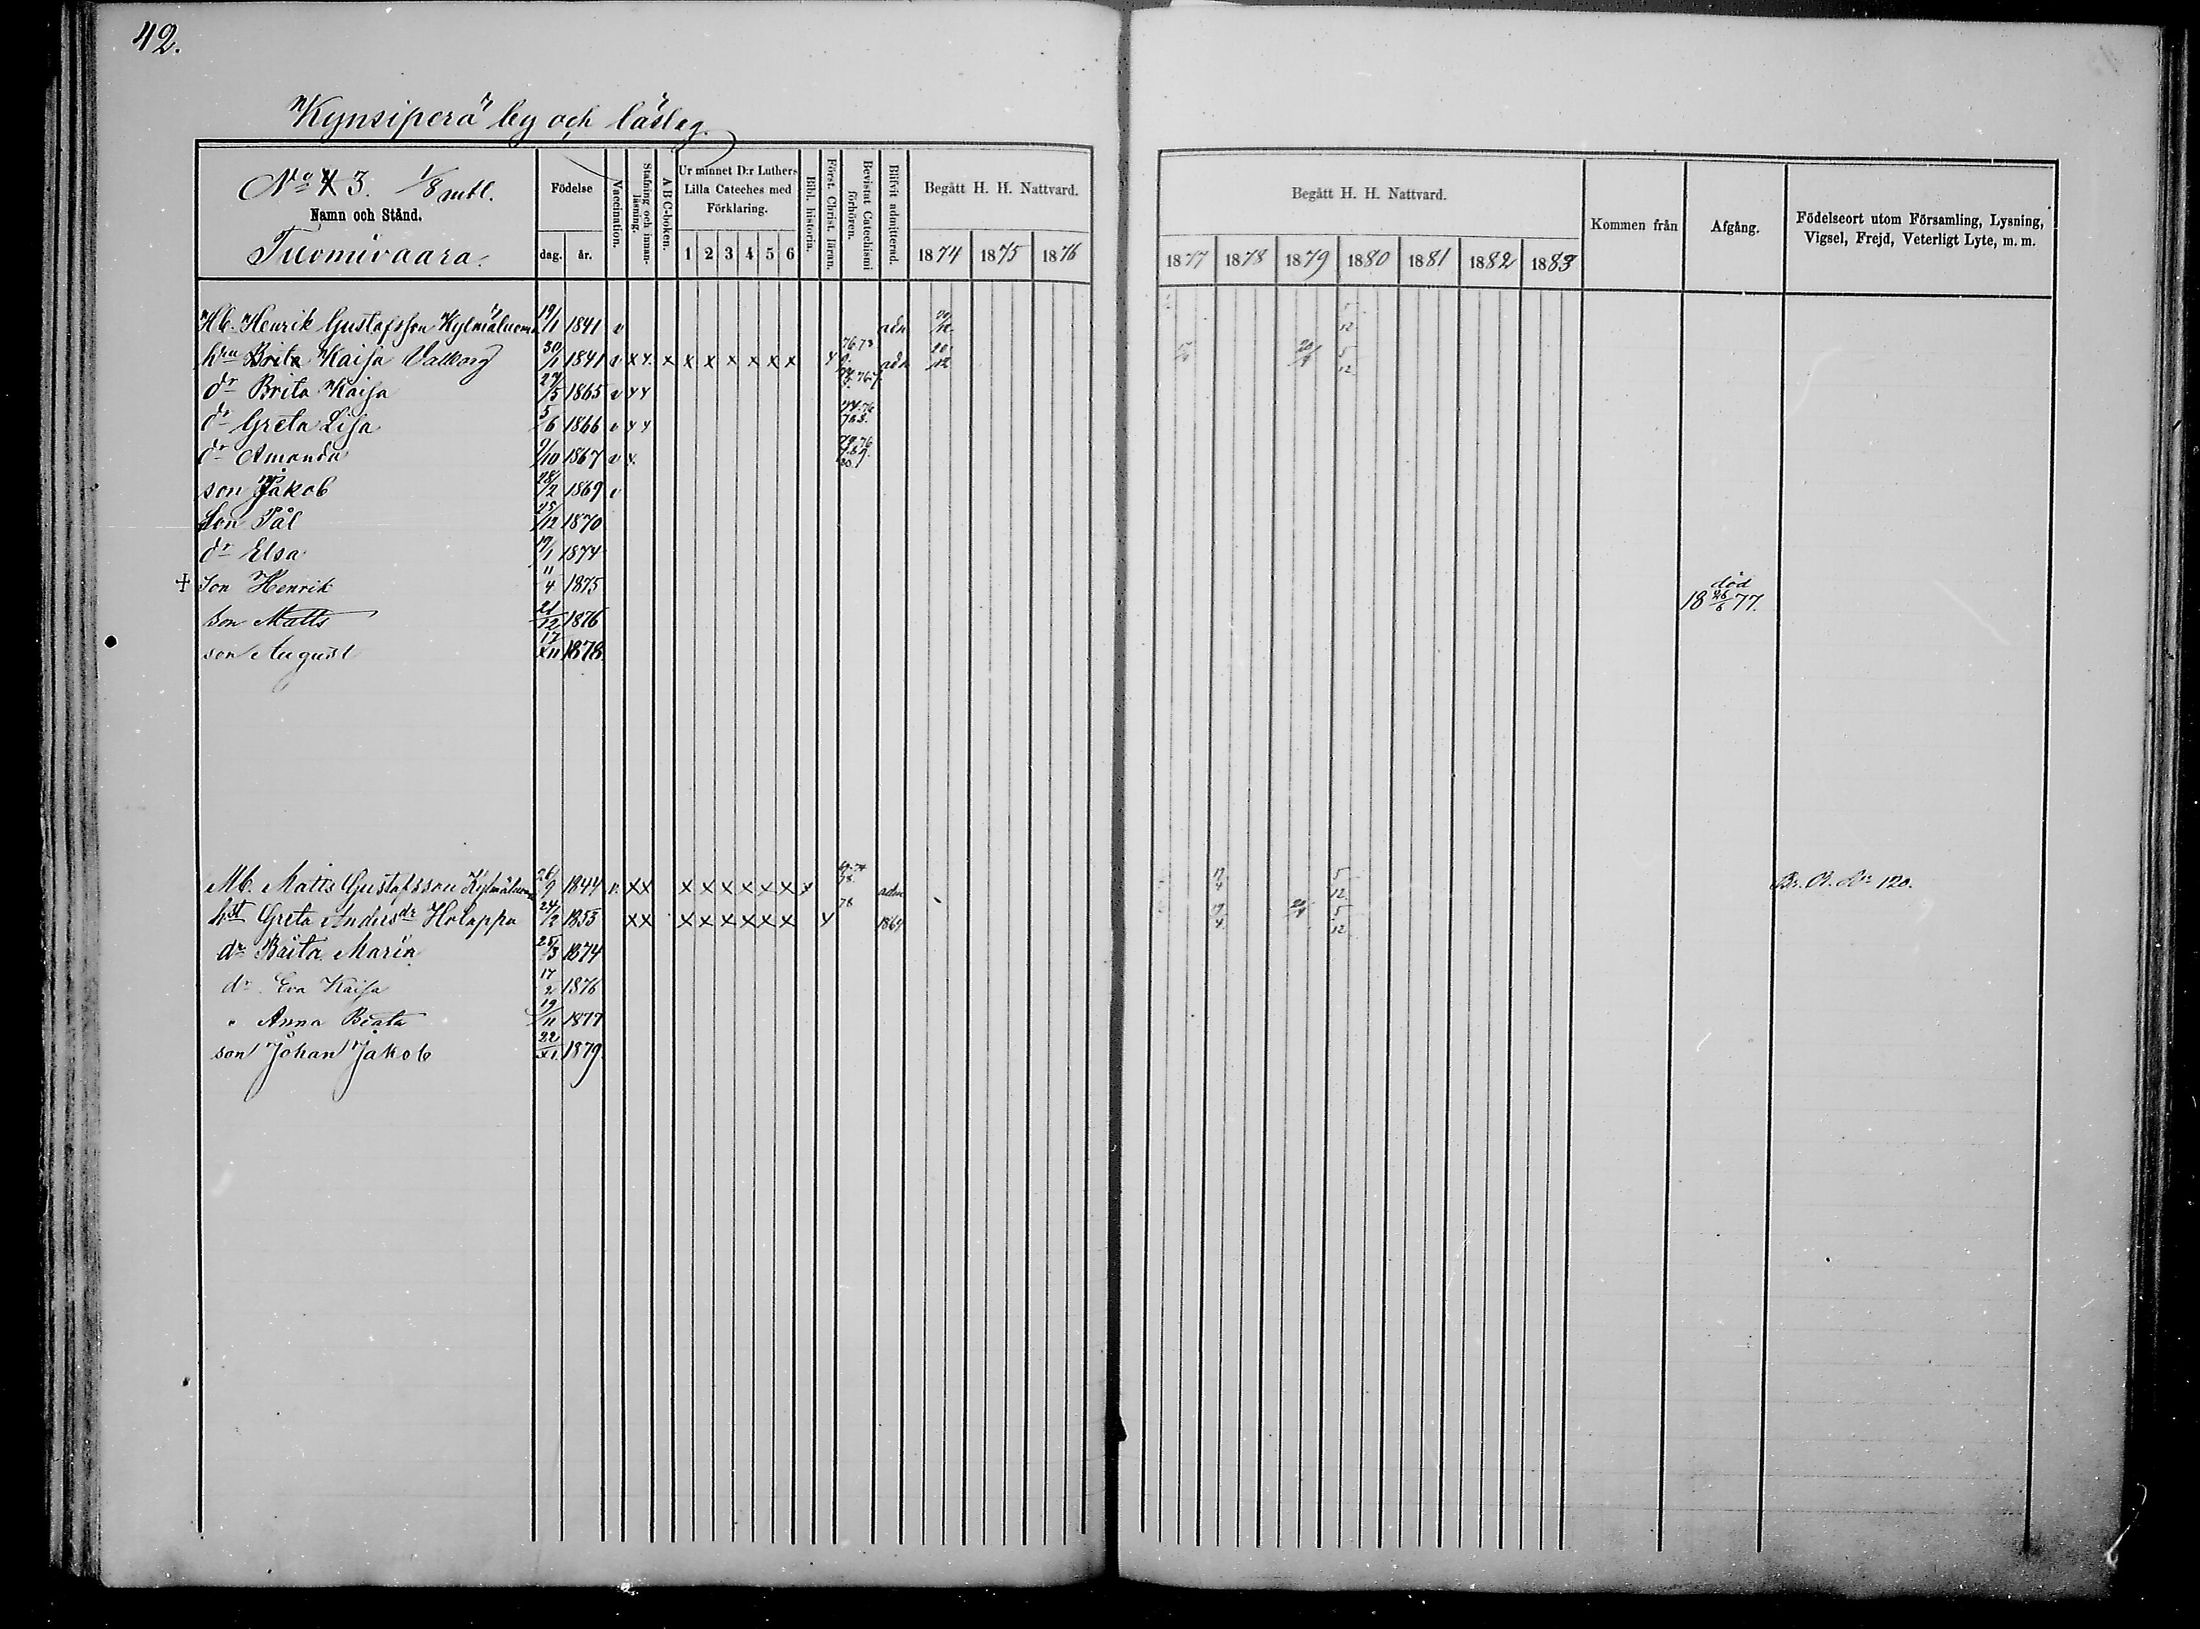 42.
Kynsiperä by och läslag.
No 4 3. 1/8 mtl.
Namn och Stånd.
Tuomivaara.
Födelse
dag. år.
Vaccination.
Stafning och innanläsning.
A B C-boken.
Ur minnet D:r Luthers
Lilla Cateches med
Förklaring.
1 2 3 4 5 6
Bibl. historia.
Först. Christ. läran.
Bevistat Catechismi förhören.
Blifvit admitterad.
Begått H. H. Nattvard.
1874 1875 1876
Begått H. H. Nattvard.
1877 1878 1879 1880 1881 1882 1883
Kommen från
Afgång.
Födelseort utom Församling, Lysning,
Vigsel, Frejd, Veterligt Lyte, m. m.
Hb. Henrik Gustafsson Kylmäluoma 19/1 1841 v adm 5/12
hru Brita Kaisa Valborg 30/1 1841 v x x x x x x x x x adm 10/12 5/12
dr Brita Kaisa 27/5 1865 v x x
dr Greta Lisa 5/6 1866 v x x
dr Amanda 9/10 1867 v x
son Jakob 28/2 1869 v
Son Pål 25/12 1870
dr Elsa 17/1 1874
+ Son Henrik 11/4 1875 död 18 26/6 77.
son Matts 21/12 1876
son August 17/XII 1878
Mb. Matts Gustafsson Kylmäluoma 26/9 1844 v. x x x x x x x x x adm 17/4 5/12 Br. Ch. No 120.
hst Greta Andersdr Holappa 24/2 1853 x x x x x x x x x 78 1869 17/4 5/12
dr Brita Maria 25/3 1874
dr Eva Kaisa 17/2 1876
" Anna Beata 19/11 1877
son Johan Jakob 22/XI. 1879